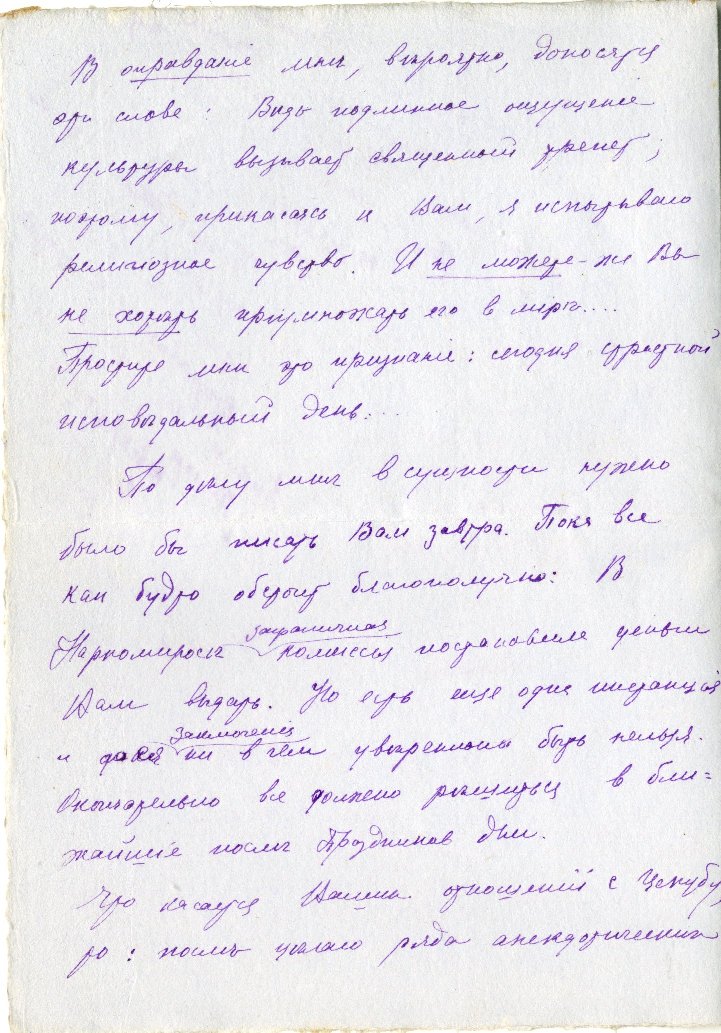 В оправданіе мнѣ, вѣроятно, доносятся
эти слова: Ведь подлинное ощущеніе
культуры вызывает священный трепет;
поэтому, прикасаясь к Вам, я испытываю
религиозное чувство. И не можете-же Вы
не хотѣть приумножать его в мирѣ....
Простите мнѣ это признаніе: сегодня страстной
исповѣдальный день...
По делу мнѣ в сущности нужно
было бы писать Вам завтра. Пока все
как будто обстоит благополучно: В
Наркомпросѣ заграничная комиссія постановила деньги
Вам выдать. Но есть еще одна инстанція
и до заключенія ни в чем увѣренным быть нельзя.
Окончательно все должно рѣшиться в бли-
жайшіе послѣ Праздников дни.
Что касается Ваших отношеній с Цекубу,
то: послѣ цѣлаго ряда анекдотических